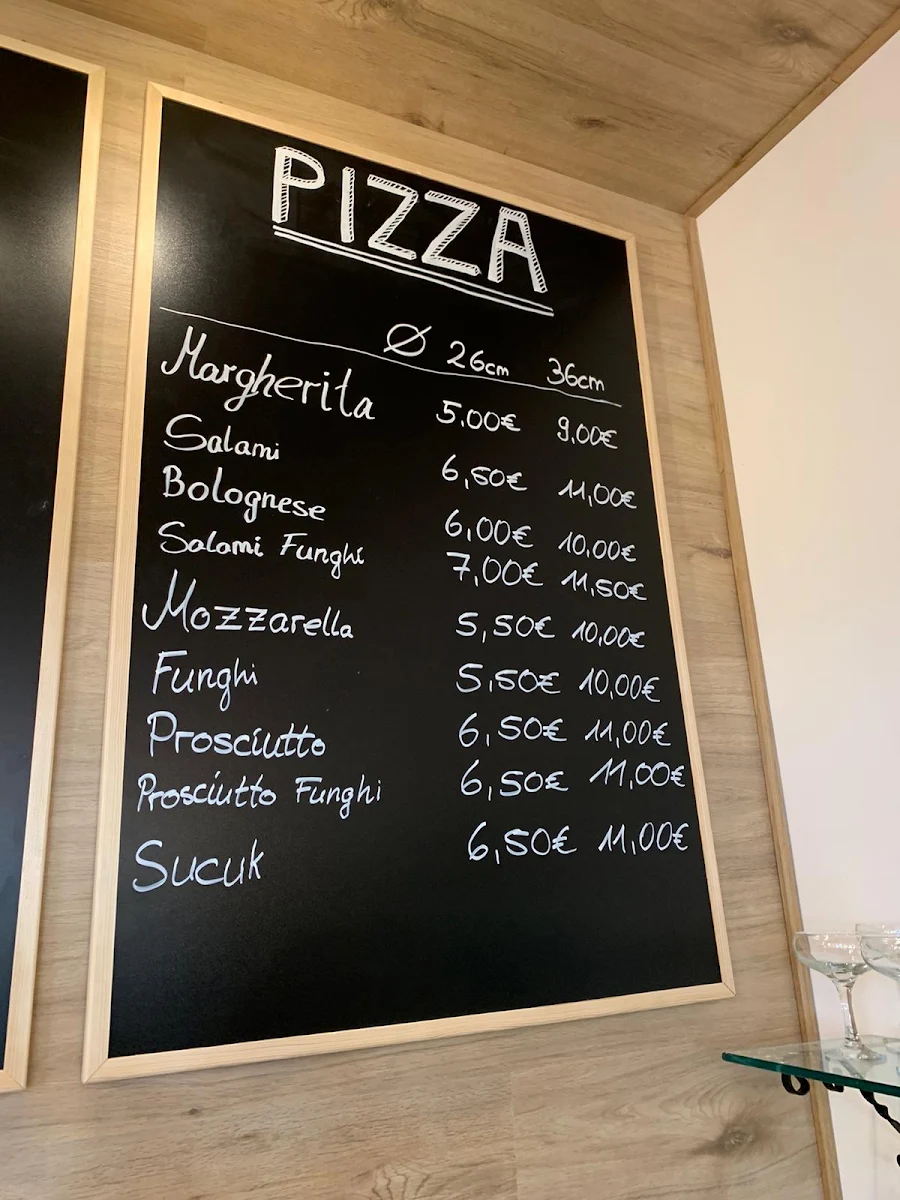 PIZZA
Ø 26cm 36cm
Margherita 5,00€ 9,00€
Salami 6,50€ 11,00€
Bolognese 6,00€ 10,00€
Salami Funghi 7,00€ 11,50€
Mozzarella 5,50€ 10,00€
Funghi 5,50€ 10,00€
Prosciutto 6,50€ 11,00€
Prosciutto Funghi 6,50€ 11,00€
Sucuk 6,50€ 11,00€